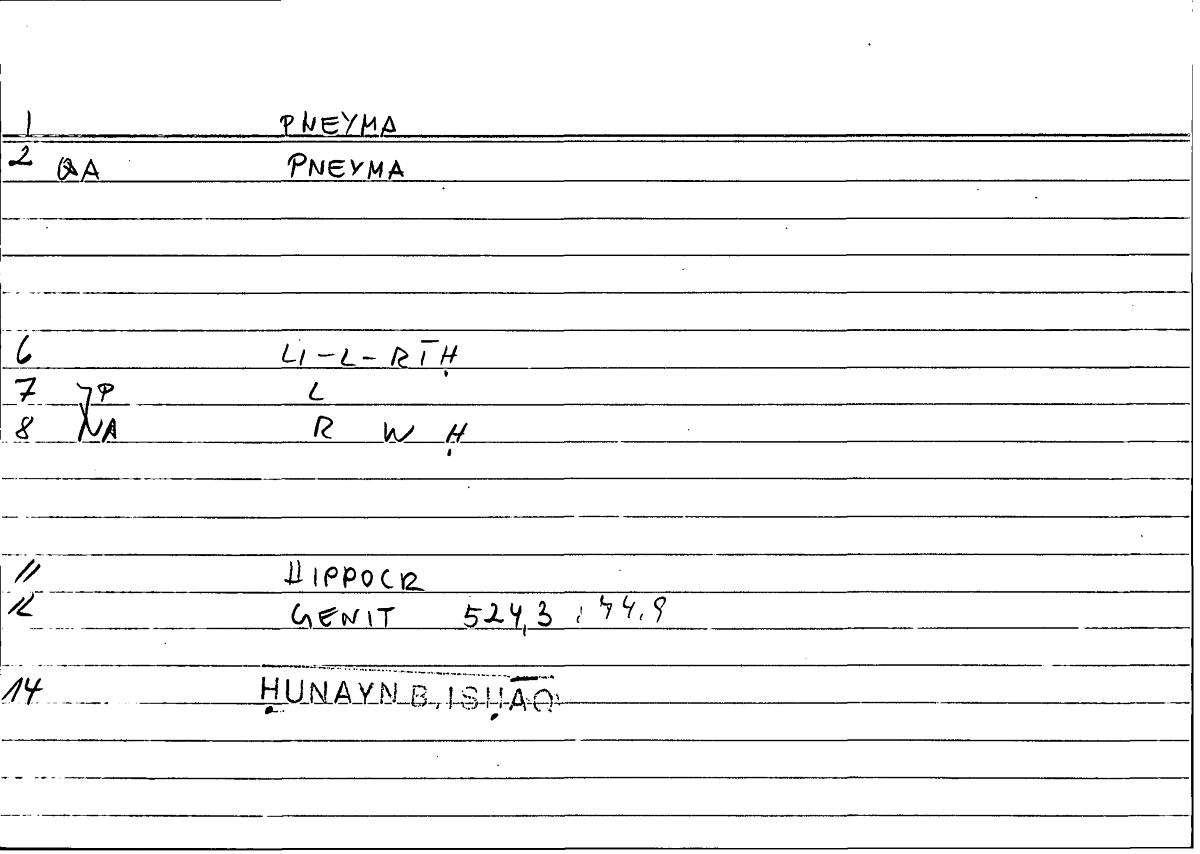 1 PNEYMA
2 QA PNEYMA
6 LI-L-RĪḤ
7 JP L
8 NA R W Ḥ
11 HIPPOCR
12 GENIT 524,3 ; 44,9
14 ḤUNAYN B. ISḤĀQ